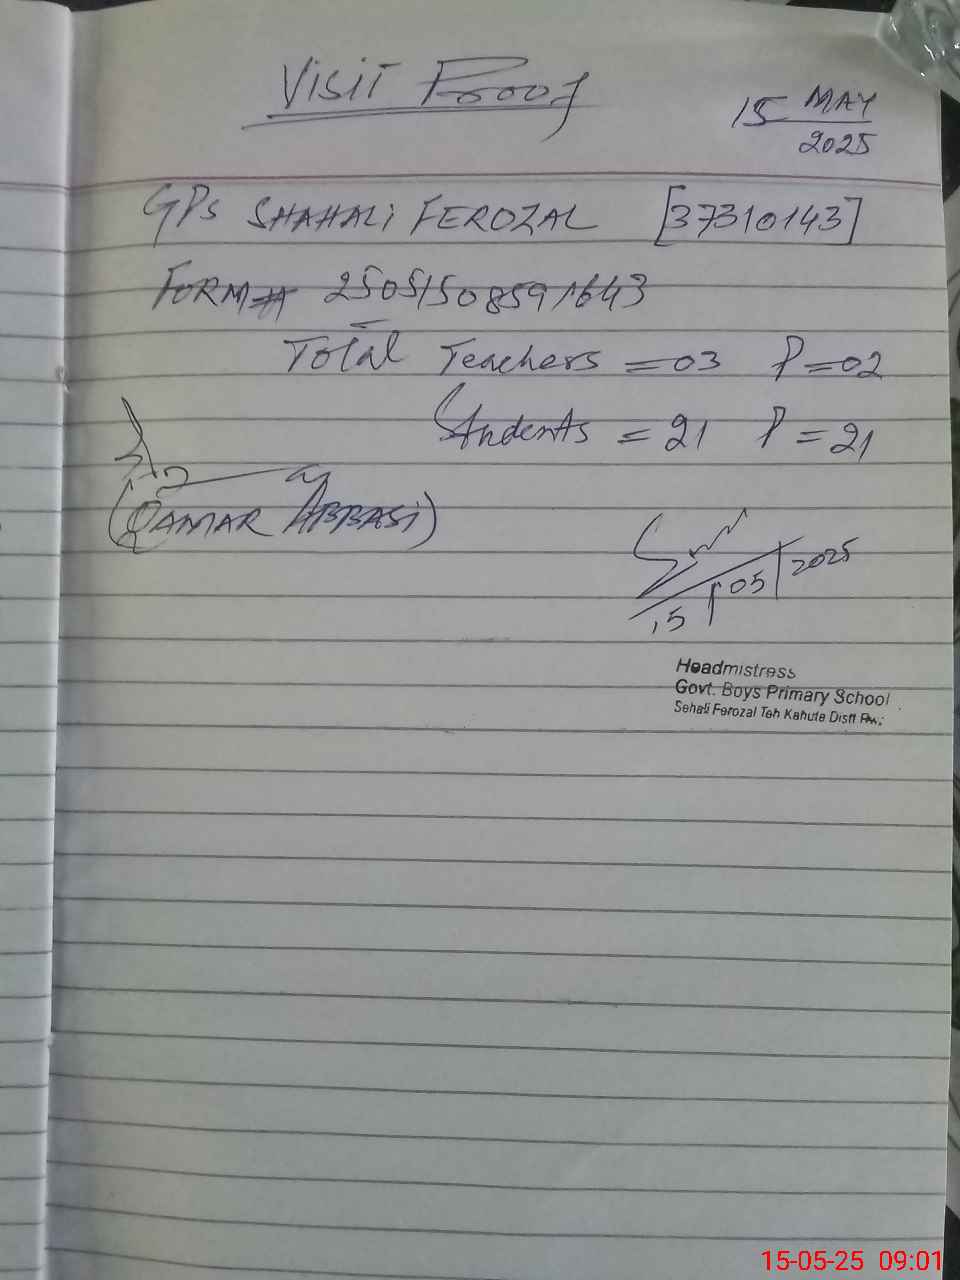 Visit Proof
15 MAY
2025
GPS SHAHALI FEROZAL [37310143]
FORM# 250515085911643
Total Teachers = 03 P = 02
Students = 21 P = 21
(QAMAR ABBASI)
15/05/2025
Headmistress
Govt. Boys Primary School
Sehali Ferozal Teh Kahuta Distt Rw.
15-05-25 09:01